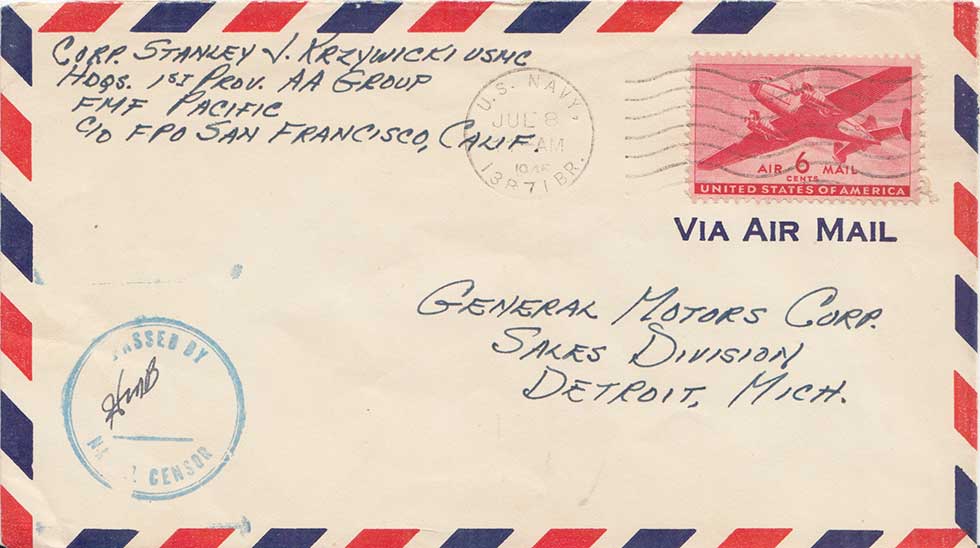 CORP. STANLEY J. KRZYWICKI USMC
HDQS. 1ST PROV. AA GROUP
FMF PACIFIC
C/O FPO SAN FRANCISCO, CALIF.
U.S. NAVY,
JUL 8
AM
13871 BR.
AIR 6 MAIL
CENTS
UNITED STATES OF AMERICA
VIA AIR MAIL
GENERAL MOTORS CORP.
SALES DIVISION
DETROIT, MICH.
PASSED BY
CENSOR